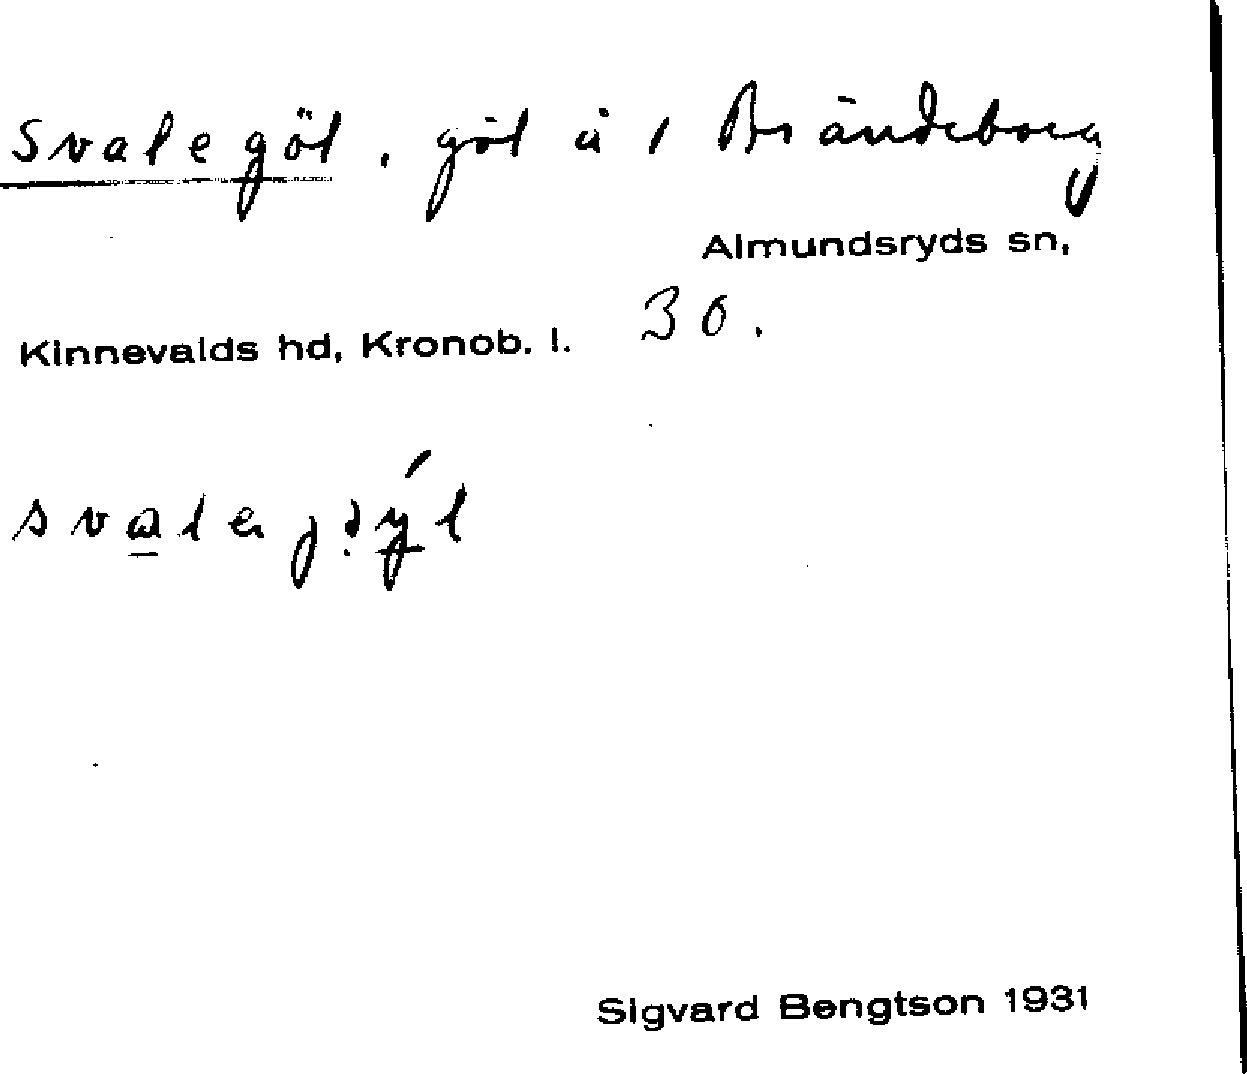 Svalegöl, göl å 1 Brändeborg
Almundsryds sn,
Kinnevalds hd, Kronob. l. 30.
Sigvard Bengtson 1931